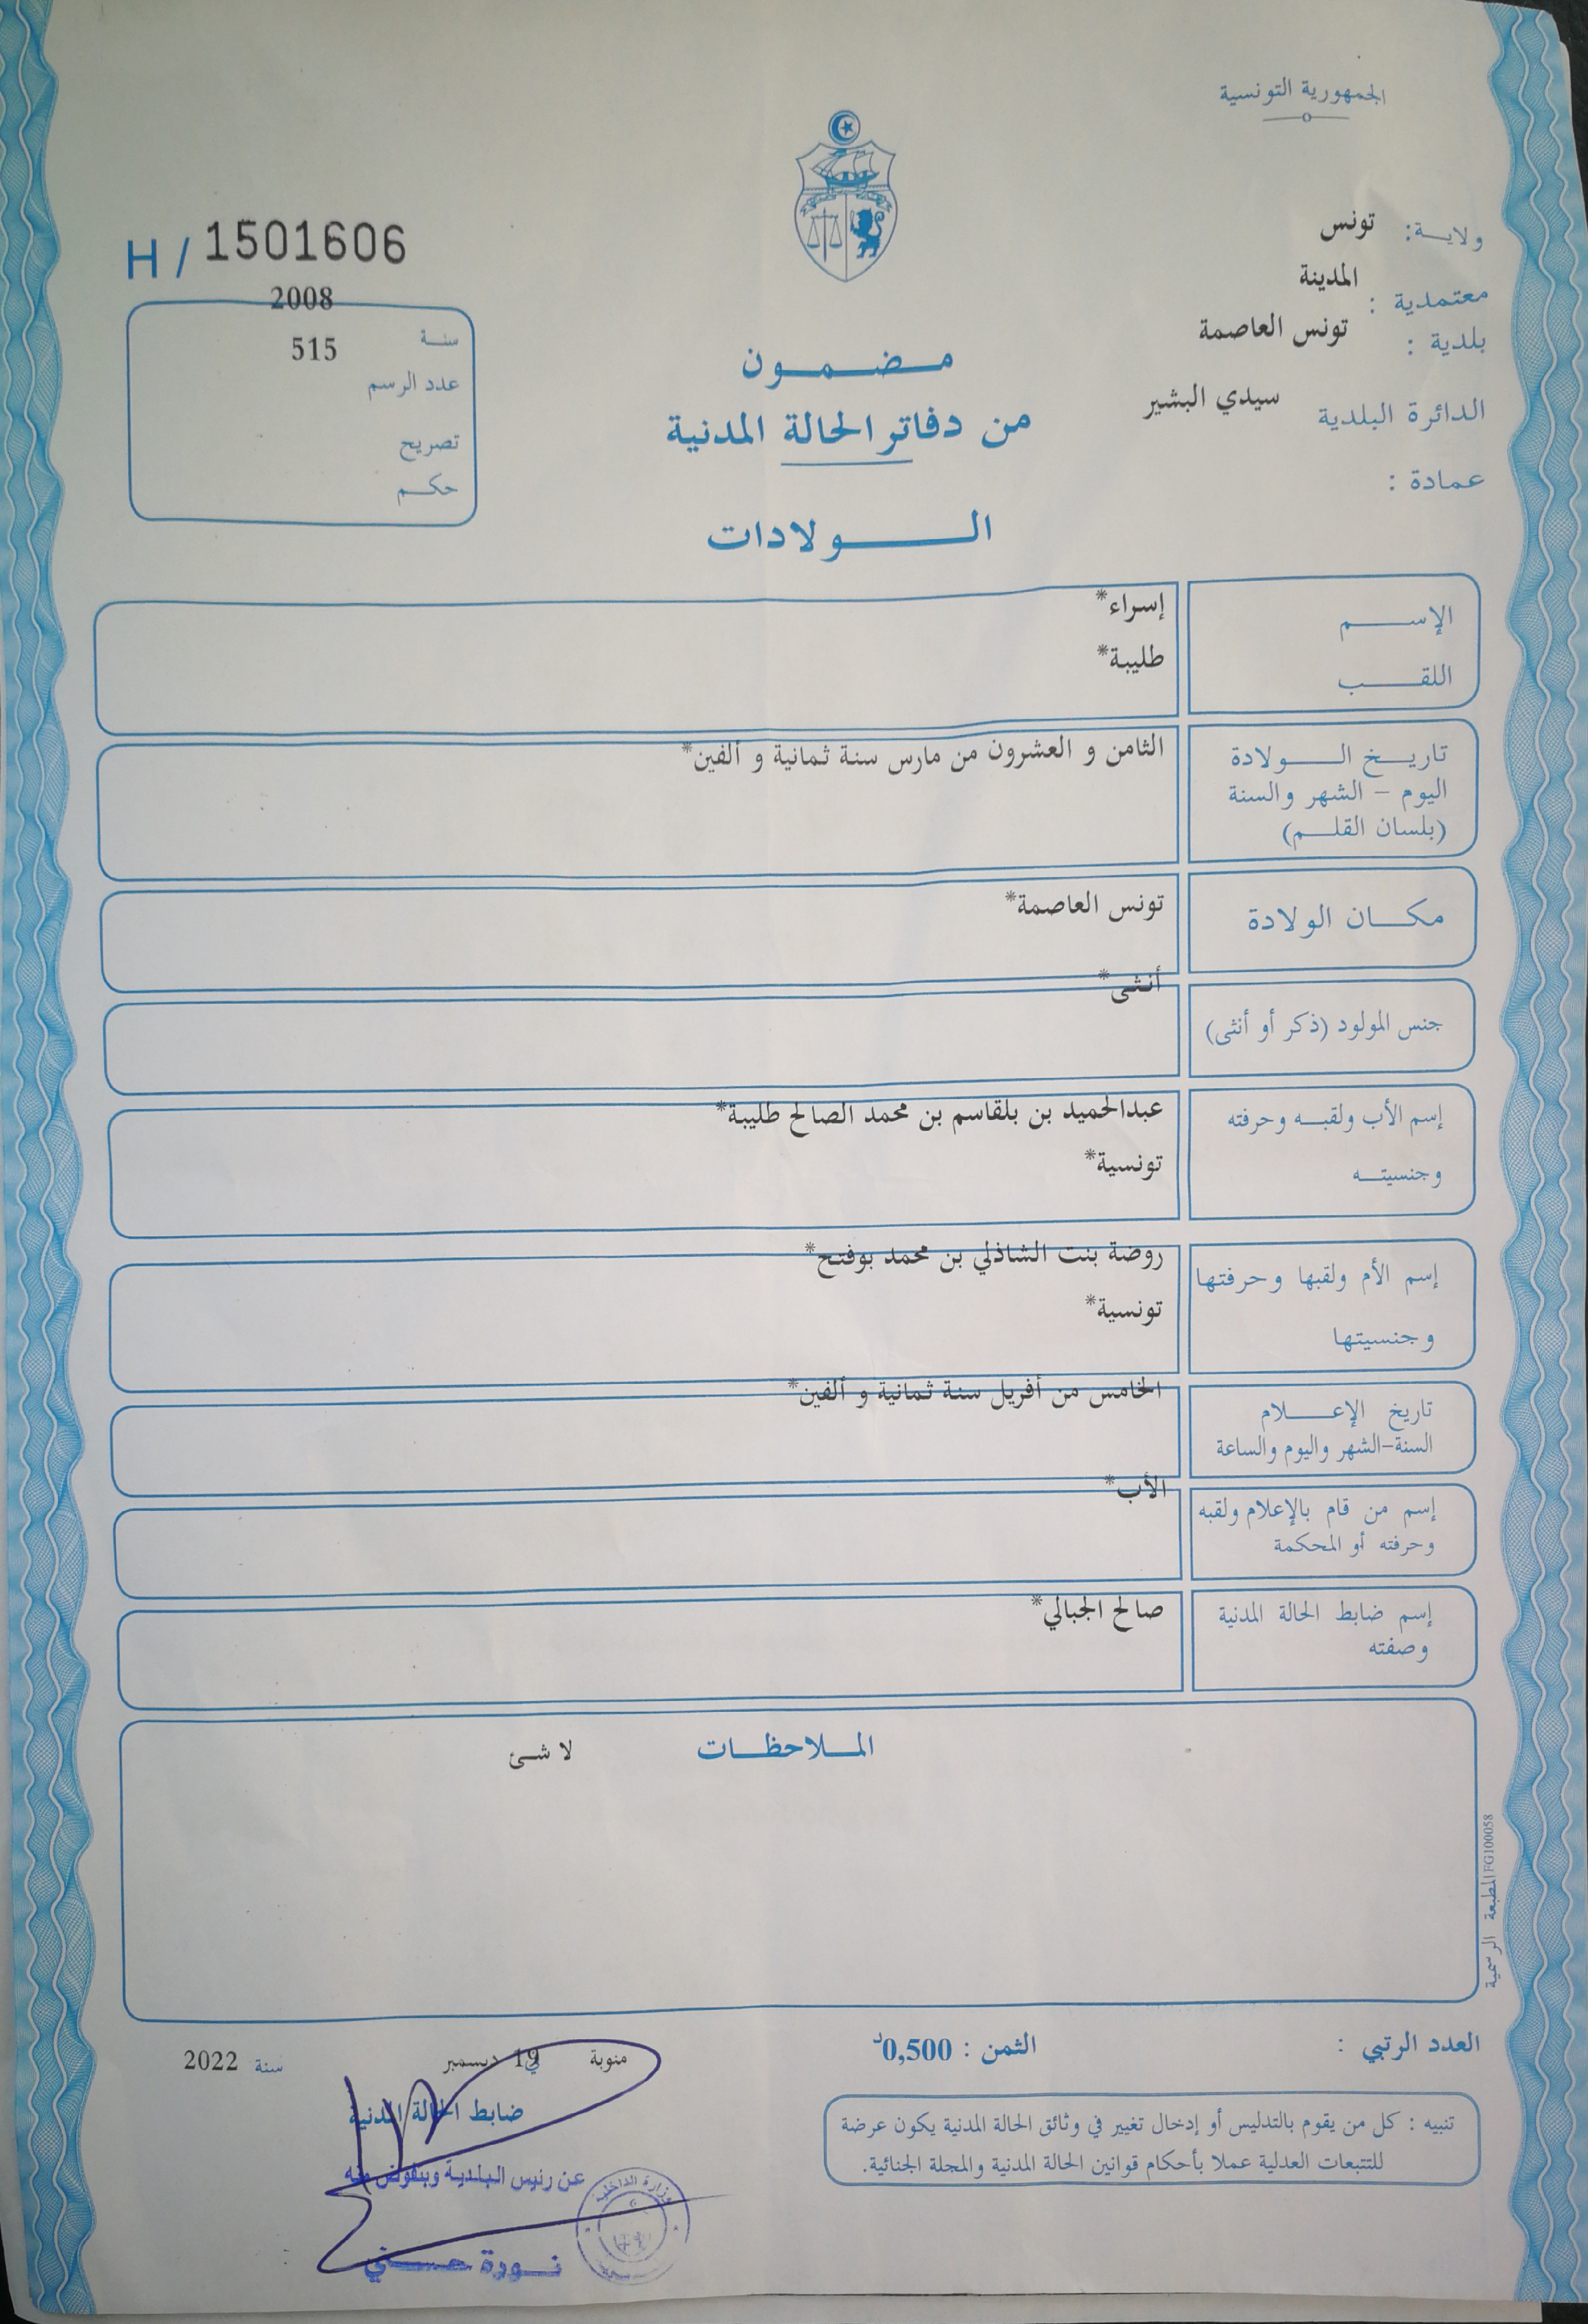 الجمهورية التونسية
ولاية: تونس
معتمدية : المدينة
بلدية : تونس العاصمة
الدائرة البلدية سيدي البشير
عمادة :
H / 1501606
سنة 2008
عدد الرسم 515
تصريح
حكم
مضمون
من دفاتر الحالة المدنية
الولادات
الإسم إسراء*
اللقب طليبة*
تاريخ الولادة الثامن و العشرون من مارس سنة ثمانية و ألفين*
اليوم – الشهر والسنة
(بلسان القلم)
مكان الولادة تونس العاصمة*
جنس المولود (ذكر أو أنثى) أنثى*
إسم الأب ولقبه وحرفته عبدالحميد بن بلقاسم بن محمد الصالح طليبة*
وجنسيته تونسية*
إسم الأم ولقبها وحرفتها روضة بنت الشاذلي بن محمد بوفتح*
وجنسيتها تونسية*
تاريخ الإعلام الخامس من أفريل سنة ثمانية و ألفين*
السنة-الشهر واليوم والساعة
إسم من قام بالإعلام ولقبه الأب*
وحرفته أو المحكمة
إسم ضابط الحالة المدنية صالح الجبالي*
وصفته
الملاحظات لا شئ
المطبعة الرسمية FG100058
العدد الرتبي :
الثمن : 0,500د
منوبة في 19 ديسمبر سنة 2022
ضابط الحالة المدنية
عن رئيس البلدية وبتفويض منه
وزارة الداخلية
نورة حسني
تنبيه : كل من يقوم بالتدليس أو إدخال تغيير في وثائق الحالة المدنية يكون عرضة
للتتبعات العدلية عملا بأحكام قوانين الحالة المدنية والمجلة الجنائية.